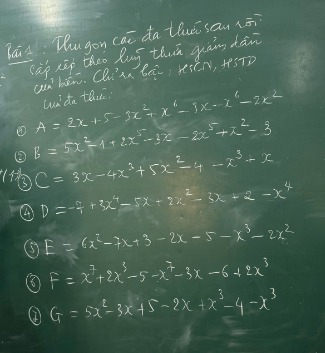 Bài 1: Thu gọn các đa thức sau rồi
sắp xếp theo luỹ thừa giảm dần
của biến. Chỉ ra bậc, HSCN, HSTD
của đa thức:
① A = 2x + 5 - 3x² + x⁶ - 3x - x⁶ - 2x²
② B = 5x² - 1 + 2x⁵ - 3x - 2x⁵ + x² - 3
③ C = 3x - 4x³ + 5x² - 4 - x³ + x
④ D = -7 + 3x⁴ - 5x + 2x² - 3x + 2 - x⁴
⑤ E = 6x² - 7x + 3 - 2x - 5 - x³ - 2x²
⑥ F = x⁷ + 2x³ - 5 - x⁷ - 3x - 6 + 2x³
⑦ G = 5x² - 3x + 5 - 2x + x³ - 4 - x³